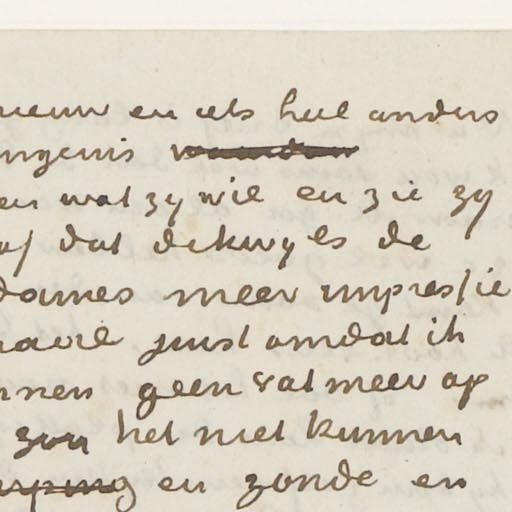 nieuw en iets heel anders
ngenis
en wat zy wil en zie zy
af dat dikwyls de
dames meer impressie
juist omdat ik
nnen geen vat meer op
zou het niet kunnen
en zonde en